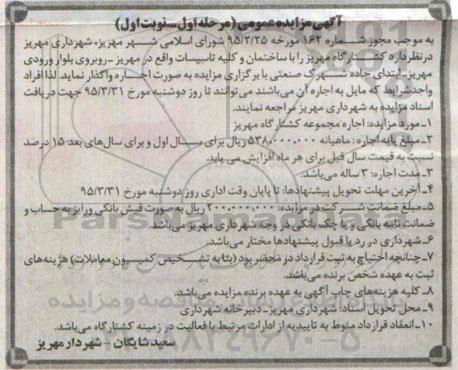 آگهی مزایده عمومی (مرحله اول-نوبت اول)
به موجب مجوز شماره ۱۶۲ مورخه ۹۵/۲/۲۵ شورای اسلامی شهر مهریز، شهرداری مهریز
درنظردارد کشتارگاه مهریز را با ساختمان و کلیه تاسیسات واقع در مهریز-روبروی بلوار ورودی
مهریز-ابتدای جاده شهرک صنعتی با برگزاری مزایده به صورت اجاره واگذار نماید. لذا افراد
واجدشرایط که مایل به اجاره آن می‌باشند می‌توانند تا روز دوشنبه مورخ ۹۵/۳/۳۱ جهت دریافت
اسناد مزایده به شهرداری مهریز مراجعه نمایند.
۱-مورد مزایده: اجاره مجموعه کشتارگاه مهریز
۲-مبلغ پایه اجاره: ماهیانه ۵۳۸۰۰۰۰۰۰ ریال برای سال اول و برای سال‌های بعد ۱۵ درصد
نسبت به قیمت سال قبل برای هر ماه افزایش می یابد.
۳-مدت اجاره: ۳ ساله می‌باشد.
۴-آخرین مهلت تحویل پیشنهادها: تا پایان وقت اداری روز دوشنبه مورخ ۹۵/۳/۳۱
۵-مبلغ ضمانت شرکت در مزایده: ۲۰۰,۰۰۰,۰۰۰ ریال به صورت فیش بانکی واریز به حساب و
ضمانت نامه بانکی و یا چک بانکی در وجه شهرداری مهریز می‌باشد.
۶-شهرداری در رد یا قبول پیشنهادها مختار می‌باشد.
۷-چنانچه احتیاج به ثبت قرارداد در محضر بود (بنا به تشخیص کمیسیون معاملات) هزینه‌های
ثبت به عهده شخص برنده می‌باشد.
۸-کلیه هزینه‌های چاپ آگهی به عهده برنده مزایده می‌باشد.
۹-محل تحویل اسناد: شهرداری مهریز-دبیرخانه شهرداری
۱۰-انعقاد قرارداد منوط به تاییدیه از ادارات مرتبط با فعالیت در زمینه کشتارگاه می‌باشد.
سعید شایگان - شهردار مهریز